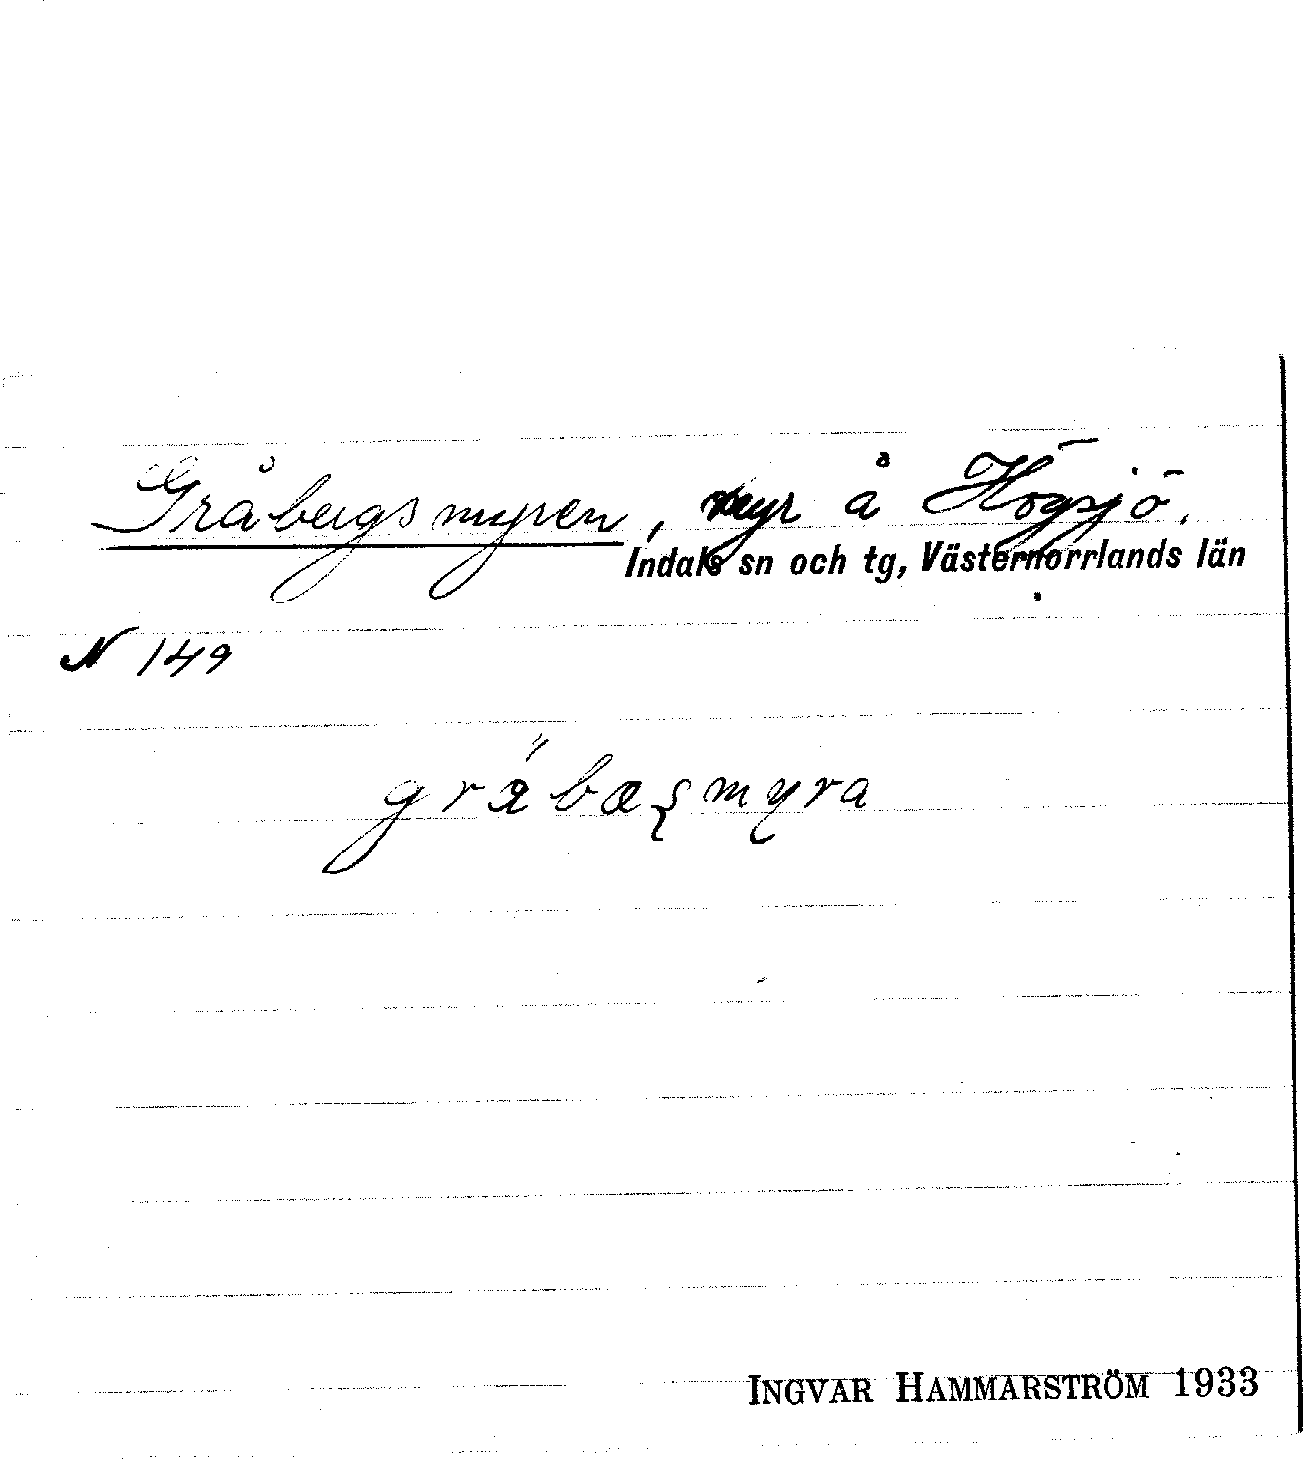 Gråbergsmyren, myr å Högsjö.
Indals sn och tg, Västernorrlands län
N 149
INGVAR HAMMARSTRÖM 1933